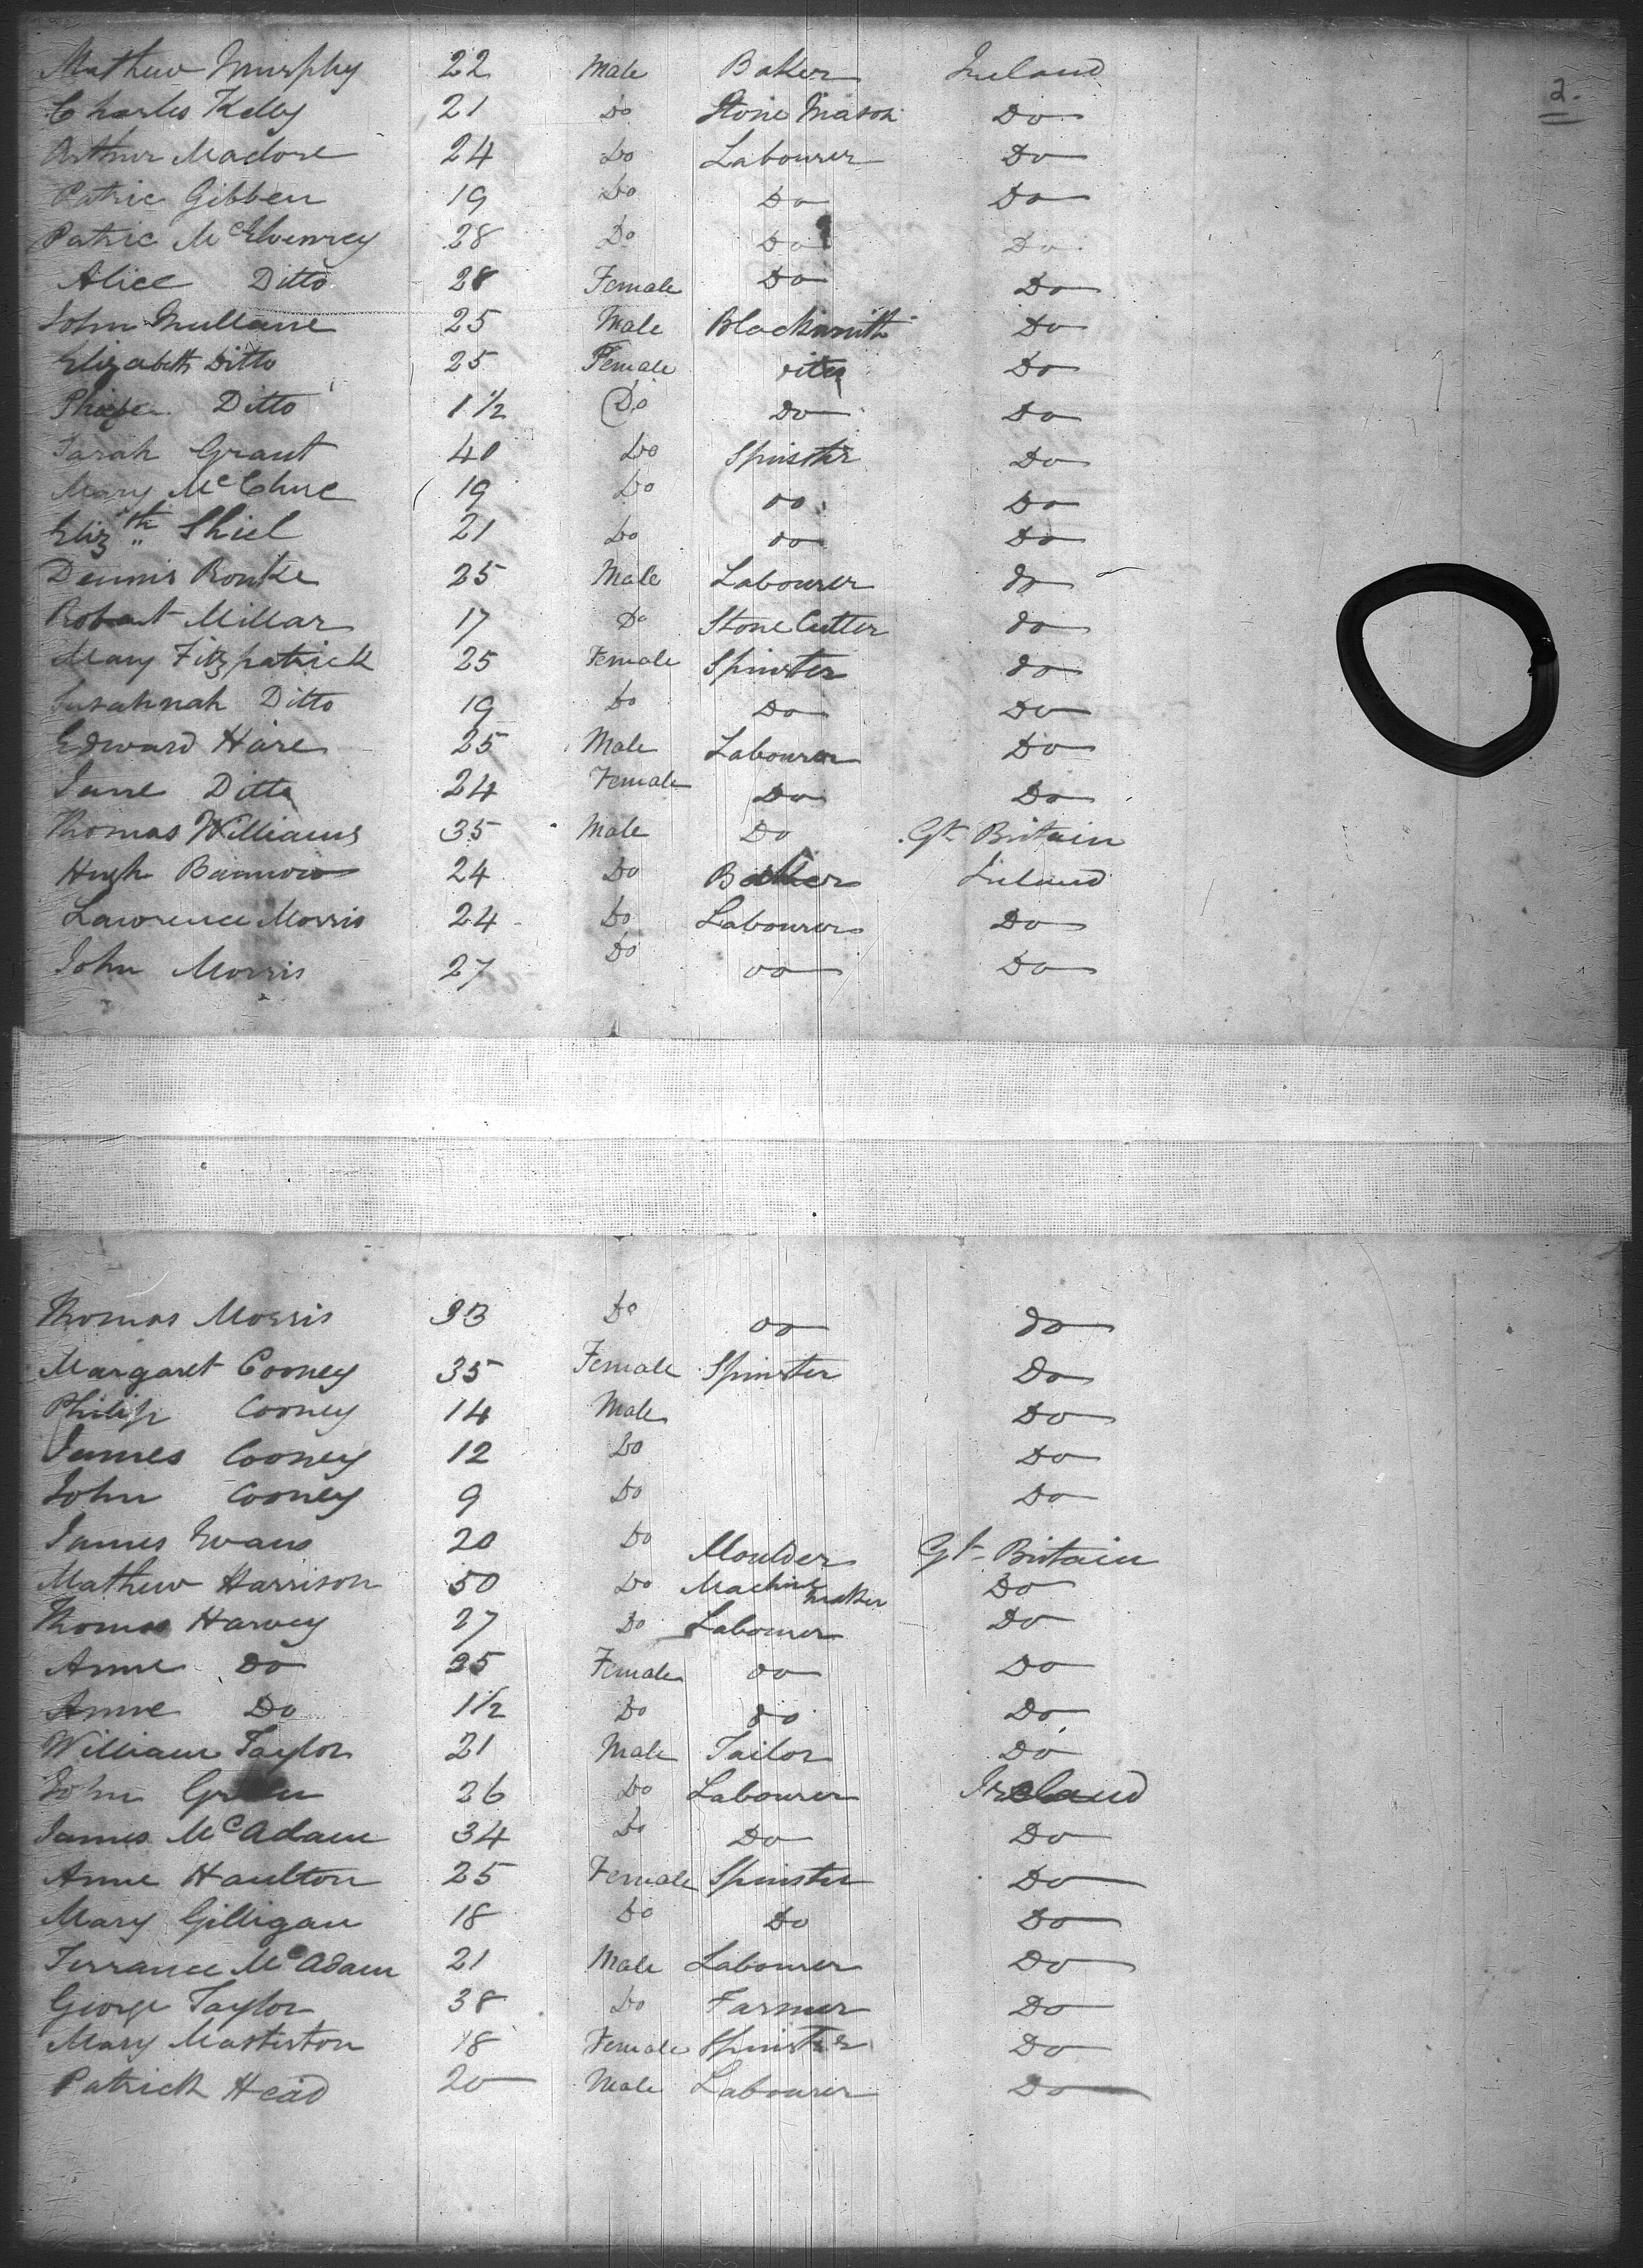 2.
Mathew Murphy 22 Male Baker Ireland
Charles Kelly 21 Do Stone Mason Do
Arthur Madore 24 Do Labourer Do
Patric Gibben 19 Do Do Do
Patric 28 Do Do Do
Alice Ditto 28 Female Do Do
John Mullane 25 Male Blacksmith Do
Elizabeth Ditto 25 Female Do
Ditto 1 1/2 Do Do Do
Sarah Grant 40 Do Spinster Do
Mary McClune 19 Do Do Do
Elizth Shiel 21 Do Do Do
Dennis Rourke 25 Male Labourer do
Robert Millar 17 Do Stone Cutter do
Mary Fitzpatrick 25 Female Spinster do
Susahnah Ditto 19 Do Do Do
Edward Hare 25 Male Labourer Do
Jane Ditto 24 Female Do Do
Thomas Williams 35 Male Do Gt Britain
Hugh 24 Do Baker Ireland
Lawrence Morris 24 Do Labourer Do
John Morris 27 Do Do Do
Thomas Morris 33 Do Do do
Margaret Cooney 35 Female Spinster Do
Philip Cooney 14 Male Do
James Cooney 12 Do Do
John Cooney 9 Do Do
James Evans 20 Do Moulder Gt Britain
Mathew Harrison 50 Do Machine Maker Do
Thomas Harvey 27 Do Labourer Do
Anne Do 25 Female Do Do
Anne Do 1 1/2 Do Do Do
William Taylor 21 Male Tailor Do
John Green 26 Do Labourer Ireland
James McAdam 34 Do Do Do
Anne Haulton 25 Female Spinster Do
Mary Gilligan 18 Do Do Do
Terrance McAdam 21 Male Labourer Do
George Taylor 38 Do Farmer Do
Mary Masterton 18 Female Spinster Do
Patrick Head 20 Male Labourer Do